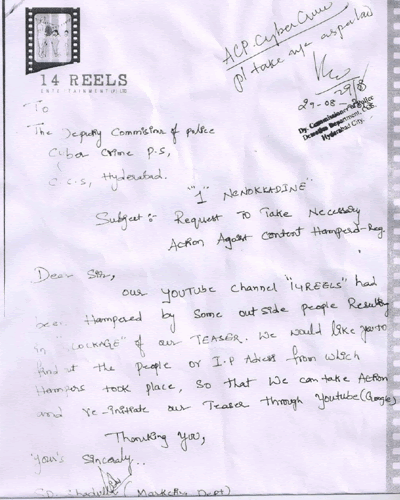 14 REELS
ENTERTAINMENT (P) LTD
ACP. Cyber Crime
pl take n/a as per law
29/8
29-08-
Dy. Commissioner of Police
Detective Department, CCS.
Hyderabad City.
To
The Deputy Commisine of police
Cyber Crime P.S,
C.C.S, Hyderabad.
"1" NENOKKADINE"
Subject:- Request To Take Necessary
Action Against content Hampered-Reg.
Dear Sir,
our YOUTUBE channel "14REELS" had
been Hampered by Some out side people Resulting
in "BLOCKAGE" of our TEASER. We would like you to
find out the people or I.P Adress from which
Hampers took place, so that We can take Action
and re-initiate our Teaser through Youtube (Google)
Thanking You,
Your's Sincerely...
(Marketing Dept)